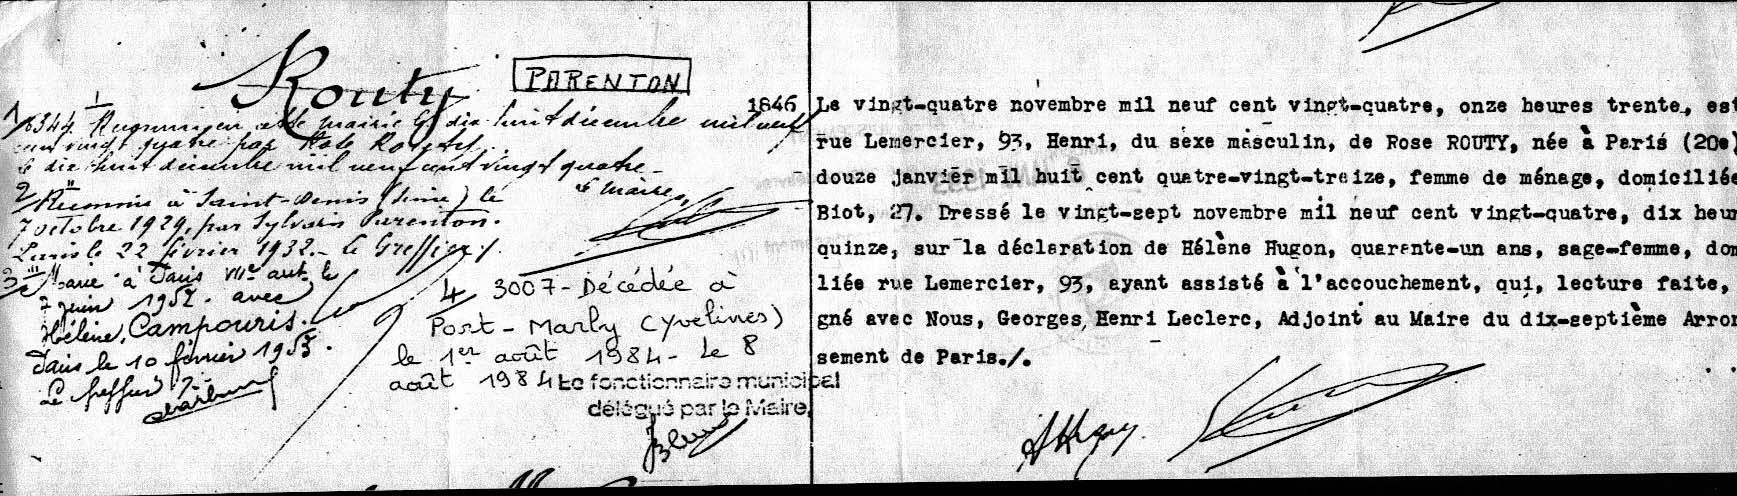 Routy
PARENTON
1/ 6344. Reconnu en cette mairie le dix huit décembre mil neuf
cent vingt quatre par Rose Routy.
le dix huit décembre mil neuf cent vingt quatre
le Maire,
2/ Reconnu à Saint-Denis (Seine) le
7 octobre 1929, par Sylvain Parenton.
Paris le 22 février 1932. - Le Greffier ./.
3/ Marié à Paris VIIe arrt le
7 juin 1952. avec
Hélène, Campouris.
Paris le 10 février 1953.
Le Greffier
4 3007 - Décédée à
Port-Marly (Yvelines)
le 1er août 1984 - Le 8
août 1984 Le fonctionnaire municipal
délégué par le Maire,
1846
Le vingt-quatre novembre mil neuf cent vingt-quatre, onze heures trente, est
rue Lemercier, 93, Henri, du sexe masculin, de Rose ROUTY, née à Paris (20e)
douze janvier mil huit cent quatre-vingt-treize, femme de ménage, domiciliée
Biot, 27. Dressé le vingt-sept novembre mil neuf cent vingt-quatre, dix heur
quinze, sur la déclaration de Hélène Hugon, quarante-un ans, sage-femme, dom
liée rue Lemercier, 93, ayant assisté à l'accouchement, qui, lecture faite,
gné avec Nous, Georges, Henri Leclerc, Adjoint au Maire du dix-septième Arron
sement de Paris./.